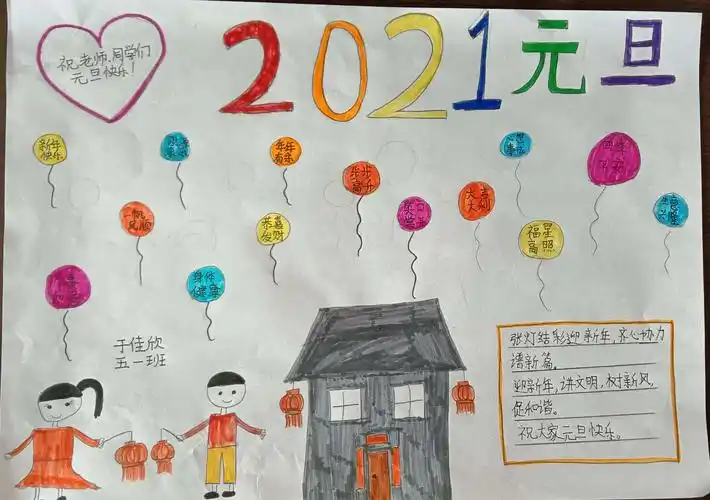 祝老师、同学们
元旦快乐！
2021元旦
新年
快乐
年年
有余
步步
高升
心想
事成
一帆
风顺
恭喜
发财
大吉
大利
福星
高照
身体
健康
于佳欣
五一班
张灯结彩迎新年，齐心协力
谱新篇。
迎新年，讲文明，树新风，
促和谐。
祝大家元旦快乐。